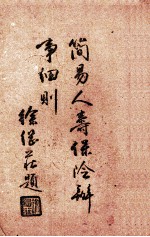 簡易人壽保險辦
事細則
徐堪題